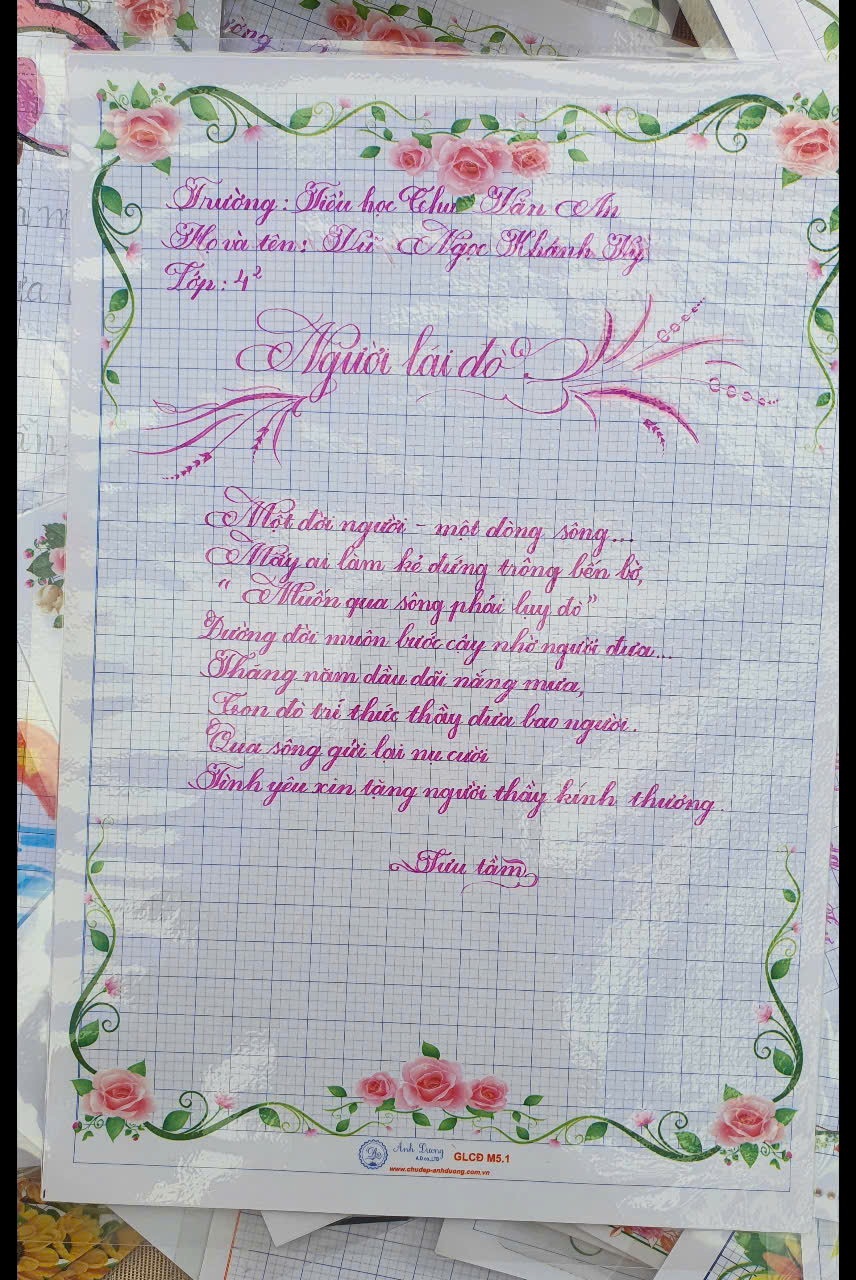 Trường: Tiểu học Chu Văn An
Họ và tên: Vũ Ngọc Khánh Vy
Lớp: 4²
Người lái đò
Một đời người – một dòng sông...
Mấy ai làm kẻ đứng trông bến bờ,
"Muốn qua sông phải lụy đò"
Đường đời muôn bước cậy nhờ người đưa...
Tháng năm dầu dãi nắng mưa,
Con đò trí thức thầy đưa bao người.
Qua sông gửi lại nụ cười
Tình yêu xin tặng người thầy kính thương.
Sưu tầm
Ánh Dương
A.D co.,LTD
GLCĐ M5.1
www.chudep-anhduong.com.vn